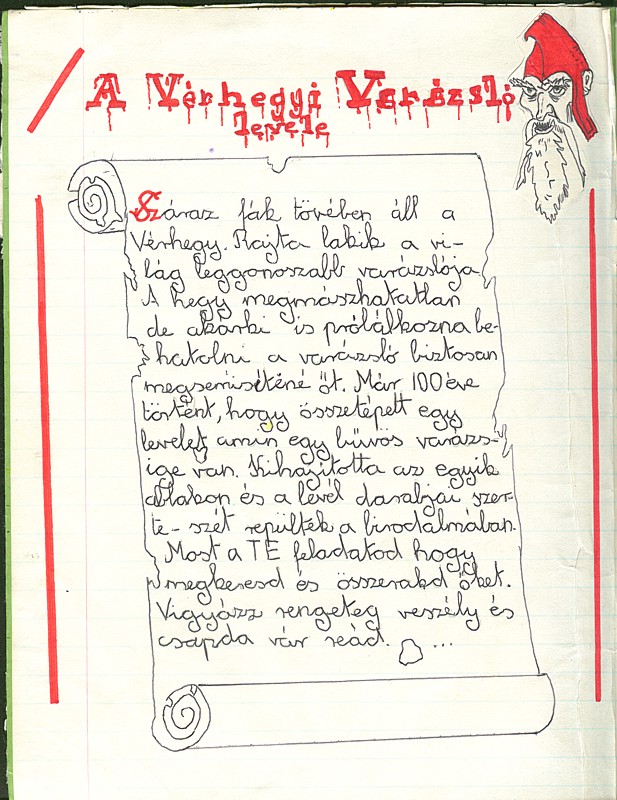 A Vérhegyi Varázsló
levele
Száraz fák tövében áll a
Vérhegy. Rajta lakik a vi-
lág leggonoszabb varázslója.
A hegy megmászhatatlan
de akárki is próbálkozna be-
hatolni a varázsló biztosan
megsemisítené őt. Már 100 éve
történt, hogy összetépett egy
levelet amin egy bűvös varázs-
ige van. Kihajította az egyik
ablakon és a levél darabjai szer-
te-szét repültek a birodalmában.
Most a TE feladatod hogy
megkeresd és összerakd őket.
Vigyázz rengeteg veszély és
csapda vár reád. ...